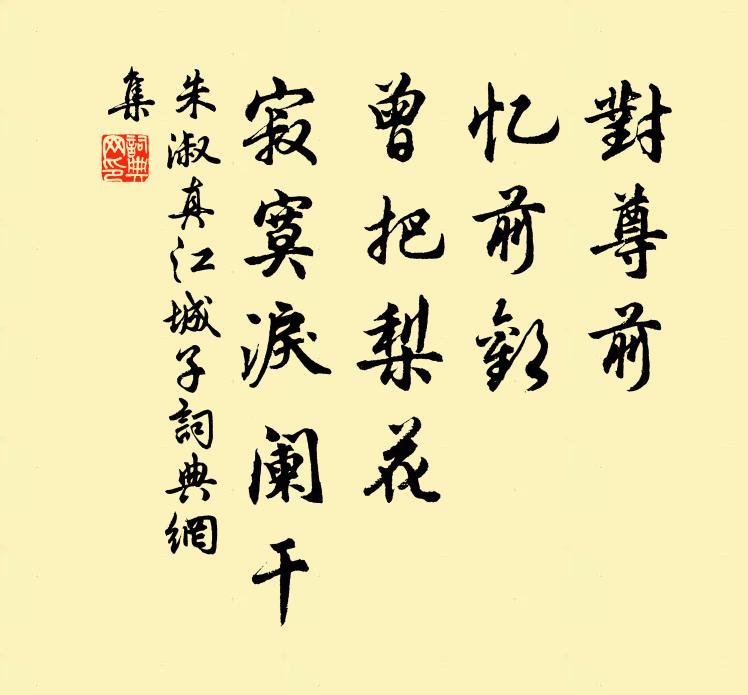 對尊前
忆前歡
曾把梨花
寂寞淚阑干
朱淑真江城子詞典網
集
詞典
网印